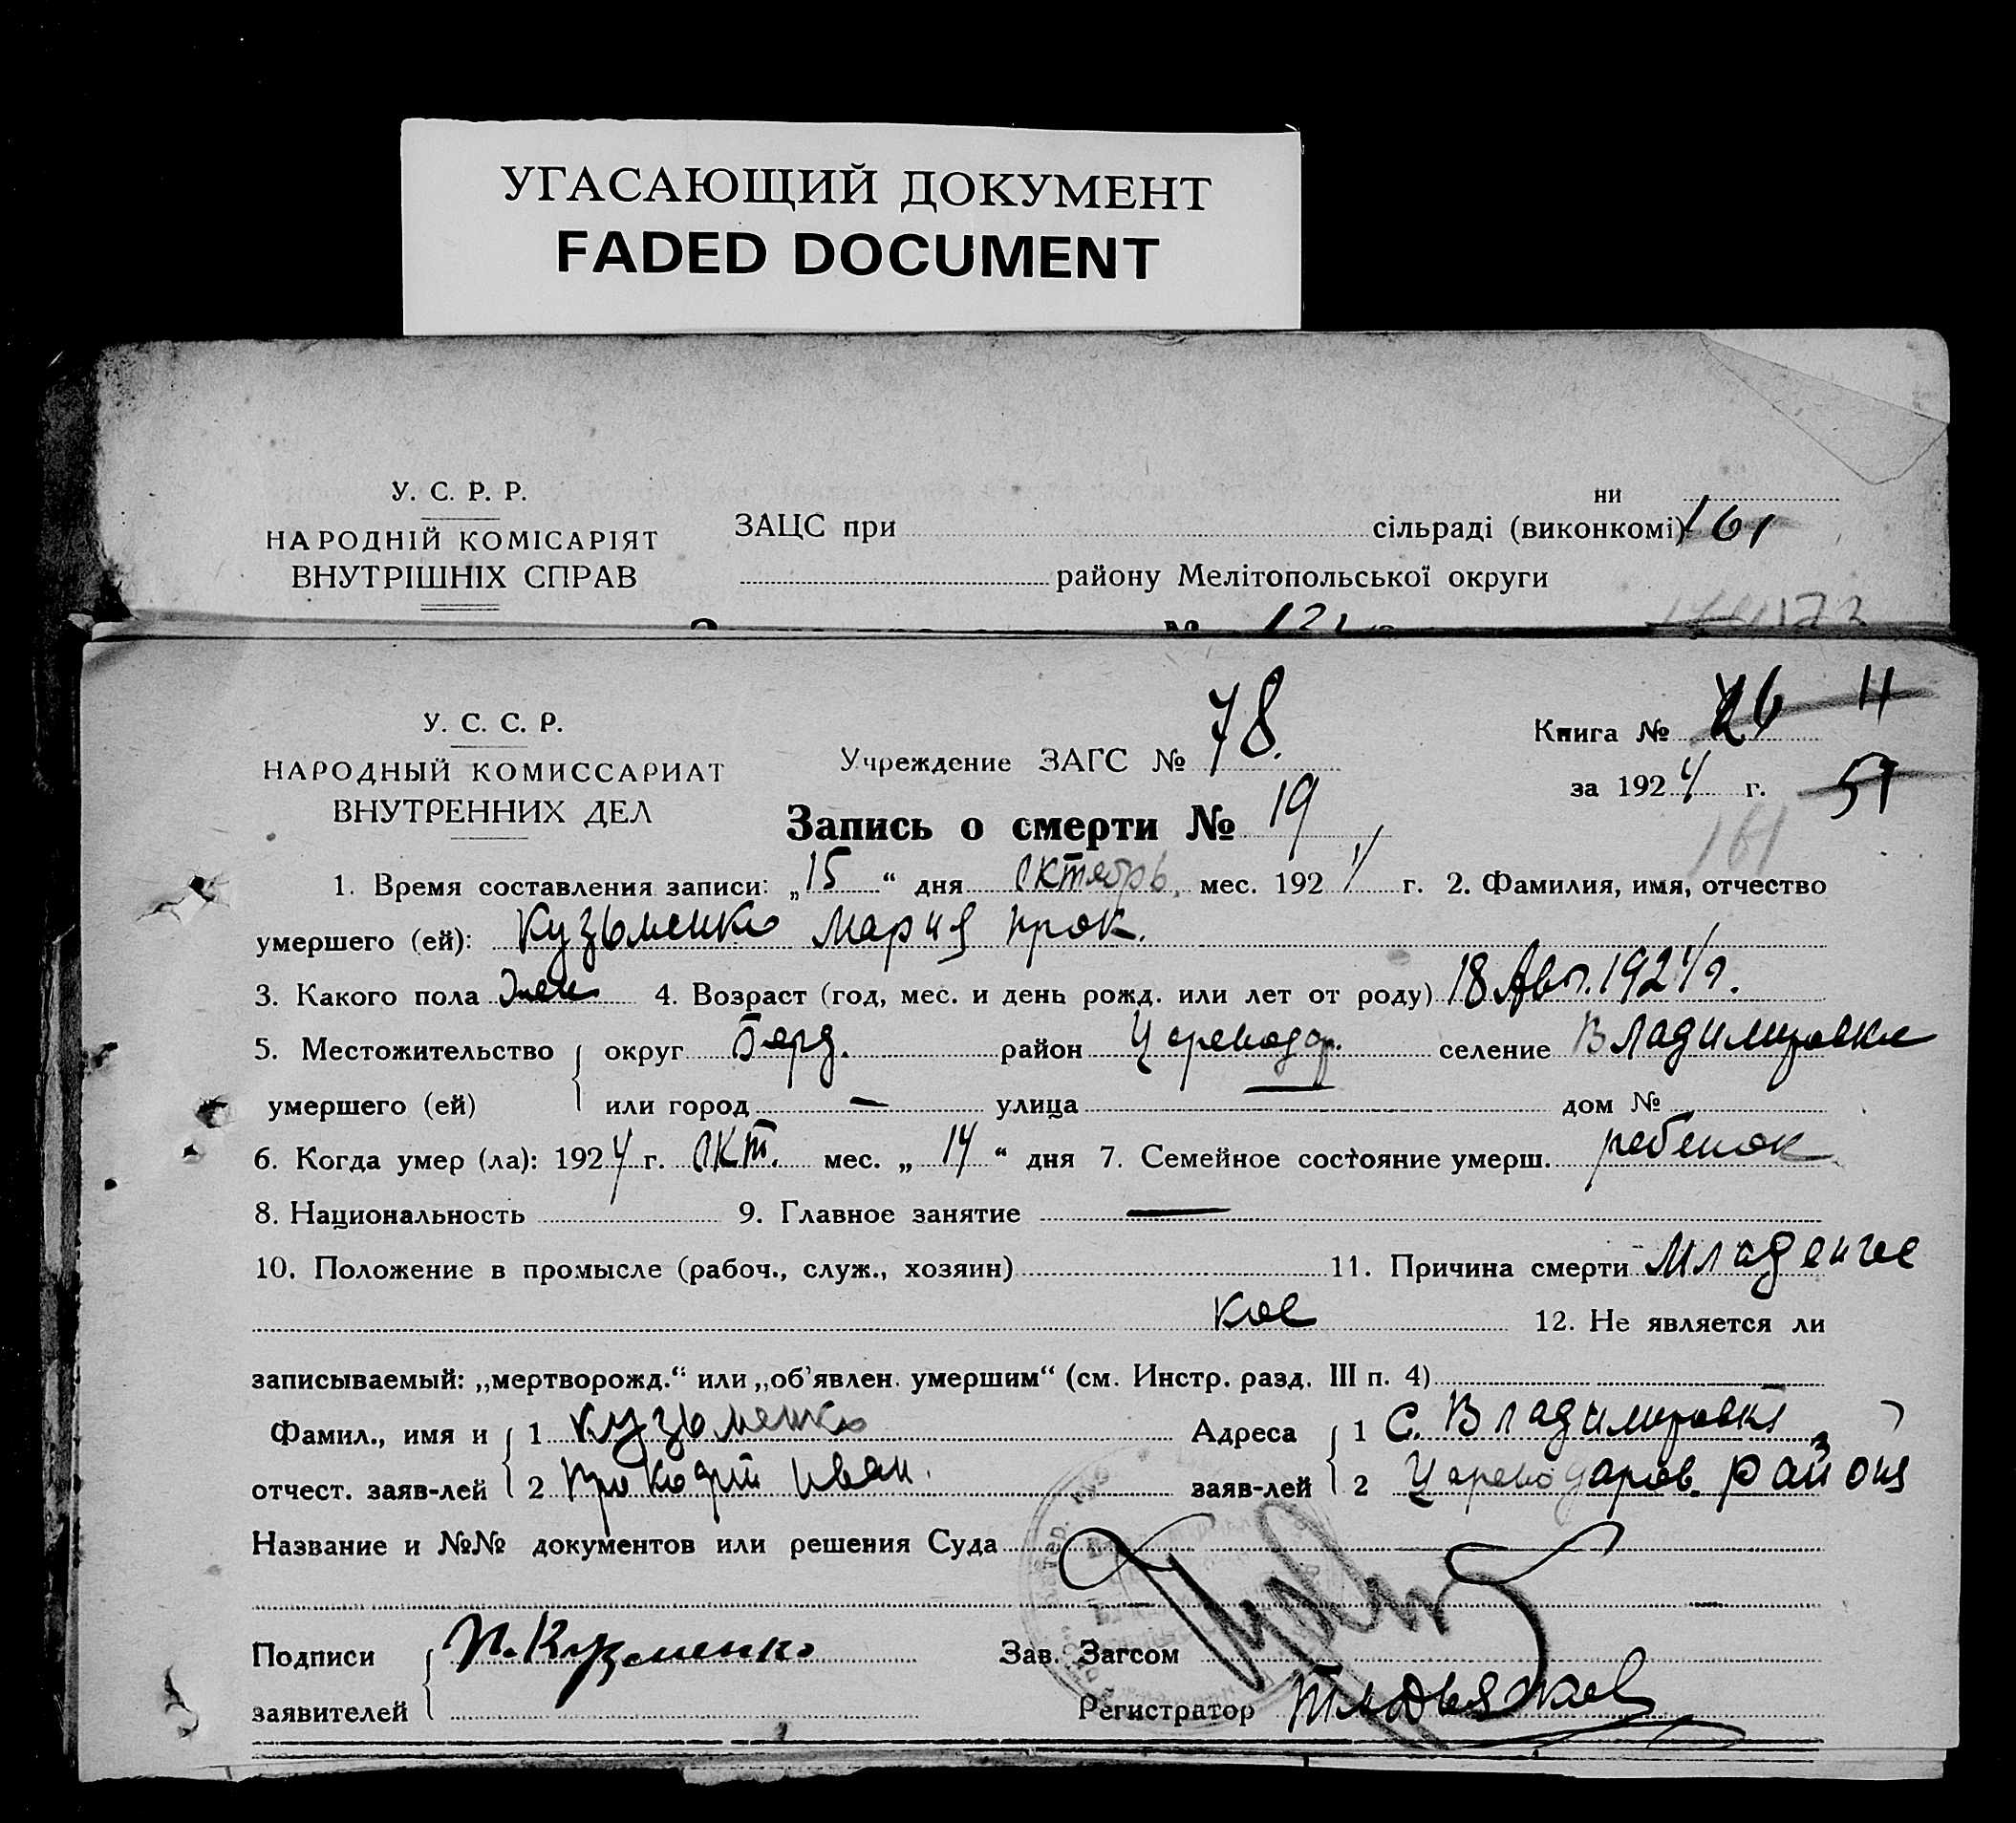 УГАСАЮЩИЙ ДОКУМЕНТ
FADED DOCUMENT
У. С. Р. Р.
НАРОДНІЙ КОМІСАРІЯТ
ВНУТРІШНІХ СПРАВ
ни
ЗАЦС при сільраді (виконкомі) 161
району Мелітопольської округи
№ 121
У. С. С. Р.
НАРОДНЫЙ КОМИССАРИАТ
ВНУТРЕННИХ ДЕЛ
Учреждение ЗАГС № 78.
Книга № 26 11
за 1924 г. 51
Запись о смерти № 19
161
1. Время составления записи: „15“ дня Октябрь мес. 1924 г. 2. Фамилия, имя, отчество
умершего (ей): Кузьменко Мария Прок.
3. Какого пола Жен 4. Возраст (год, мес. и день рожд. или лет от роду) 18 Авг. 1924 г.
5. Местожительство округ Берд. район Цареводар. селение Владимировке
умершего (ей) или город — улица — дом №
6. Когда умер (ла): 1924 г. Окт. мес. „14“ дня 7. Семейное состояние умерш. ребенок
8. Национальность 9. Главное занятие —
10. Положение в промысле (рабоч., служ., хозяин) 11. Причина смерти Младенчес
кое 12. Не является ли
записываемый: „мертворожд.“ или „об’явлен. умершим“ (см. Инстр. разд. III п. 4)
Фамил., имя и 1 Кузьменко Адреса 1 С. Владимировки
отчест. заяв-лей 2 Прокофий Иван. заяв-лей 2 Цареводаров. района
Название и №№ документов или решения Суда
Подписи П. Кузменко Зав. Загсом
заявителей Регистратор